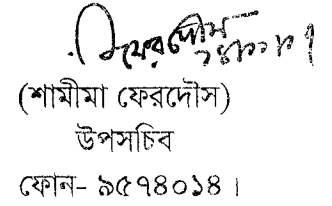 ফেরদৌস
(শামীমা ফেরদৌস)
উপসচিব
ফোন- ৯৫৭৪০১৪।